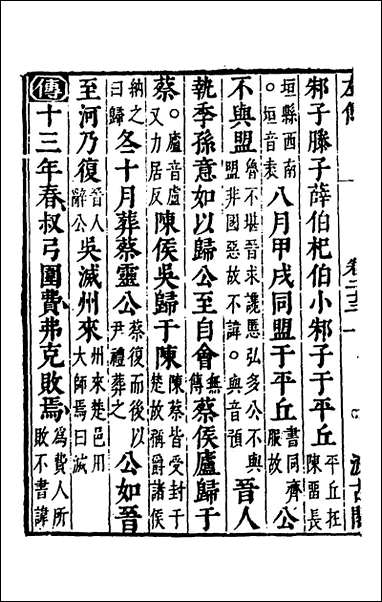 左傳 卷二十三 一 汲古閣
邾子滕子薛伯杞伯小邾子于平丘平丘在陳畱長
垣縣西南。垣音袁八月甲戌同盟于平丘書同齊服故公
不與盟魯不堪晉求讒慝弘多公不與盟非國惡故不諱。與音預晉人
執季孫意如以歸公至自會無傳蔡侯廬歸于
蔡。廬音盧又力居反陳侯吳歸于陳陳蔡皆受封于楚故稱爵諸侯
納之曰歸冬十月葬蔡靈公蔡復而後以君禮葬之公如晉
至河乃復晉人辭公吳滅州來州來楚邑用大師焉曰滅
傳十三年春叔弓圍費弗克敗焉為費人所敗不書諱